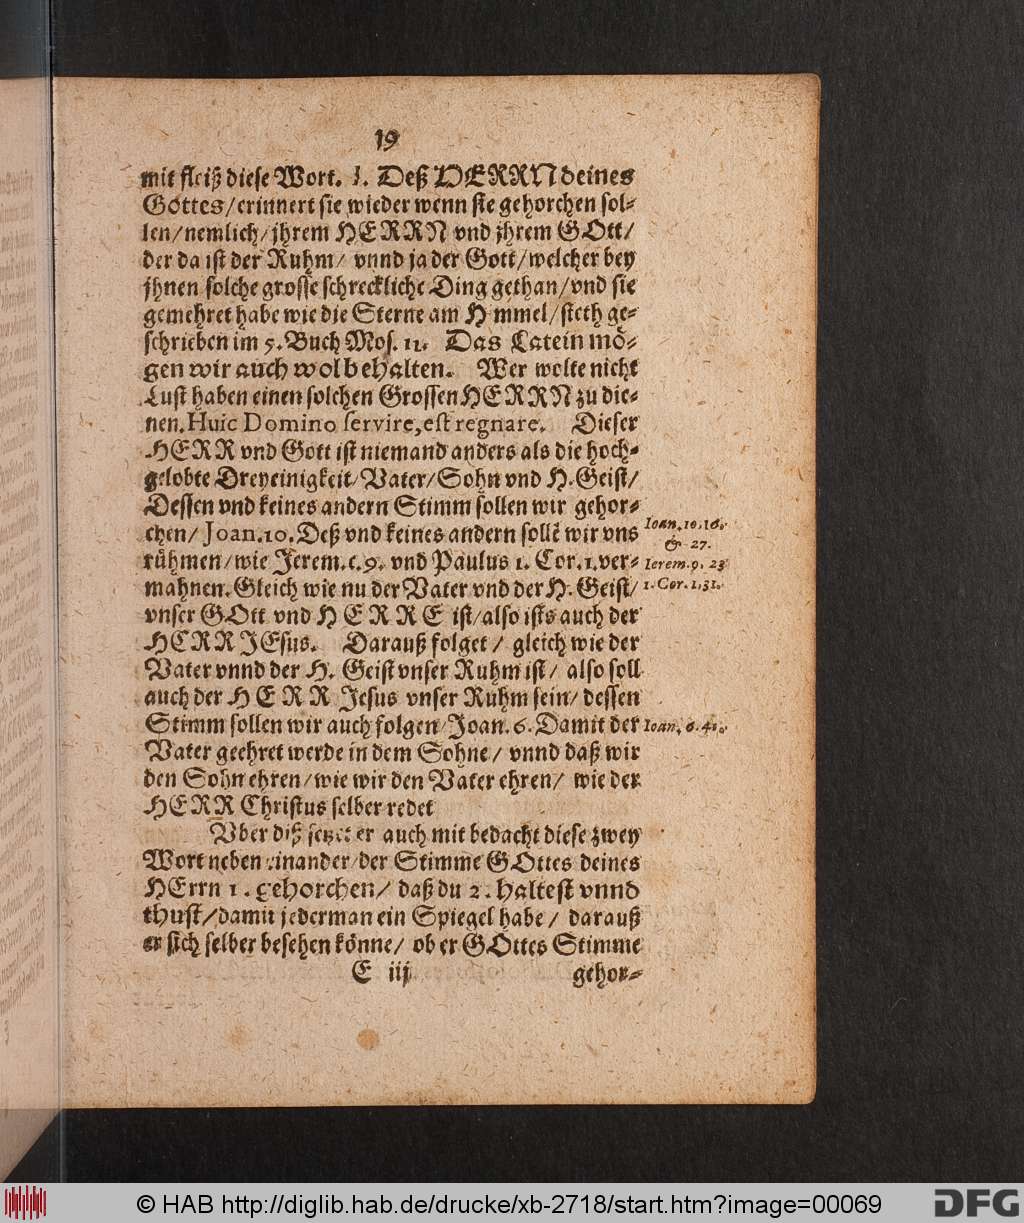 19
mit fleiß diese Wort. 1. Deß HERRN deines
Gottes/erinnert sie wieder wenn sie gehorchen sol-
len/nemlich/jhrem HERRN vnd jhrem GOtt/
der da ist der Ruhm/ vnnd ja der Gott/welcher bey
jhnen solche grosse schreckliche Ding gethan/vnd sie
gemehret habe wie die Sterne am Himmel/steth ge-
schrieben im 5. Buch Mos. 11. Das Latein mö-
gen wir auch wol behalten. Wer wolte nicht
Lust haben einen solchen Grossen HERRN zu die-
nen. Huic Domino servire, est regnare. Dieser
HERR vnd Gott ist niemand anders als die hoch-
gelobte Dreyeinigkeit/Vater/Sohn vnd H. Geist/
Dessen vnd keines andern Stimm sollen wir gehor-
chen/ Joan. 10. Deß vnd keines andern sollẽ wir vns
rühmen/wie Jerem. c. 9. vnd Paulus 1. Cor. 1. ver-
mahnen. Gleich wie nu der Vater vnd der H. Geist/
vnser GOtt vnd HERRE ist/also ists auch der
HERR JEsus. Darauß folget/ gleich wie der
Vater vnnd der H. Geist vnser Ruhm ist/ also soll
auch der HERR Jesus vnser Ruhm sein/ dessen
Stimm sollen wir auch folgen/Joan. 6. Damit der
Vater geehret werde in dem Sohne/ vnnd daß wir
den Sohn ehren/wie wir den Vater ehren/ wie der
HERR Christus selber redet
Vber diß setzet er auch mit bedacht diese zwey
Wort neben einander/der Stimme GOttes deines
HErrn 1. gehorchen/ daß du 2. haltest vnnd
thust/damit jederman ein Spiegel habe/ darauß
er sich selber besehen könne/ ob er GOttes Stimme
E iij gehor-
Ioan. 10. 16.
& 27.
Ierem. 9. 23
1. Cor. 1,31.
Ioan. 6. 45.
© HAB http://diglib.hab.de/drucke/xb-2718/start.htm?image=00069
DFG